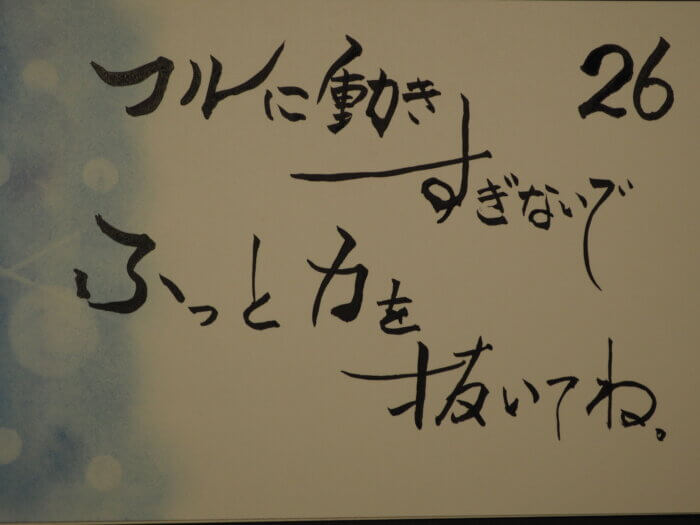 フルに動き
すぎないで
ふっと力を
抜いてね。
26